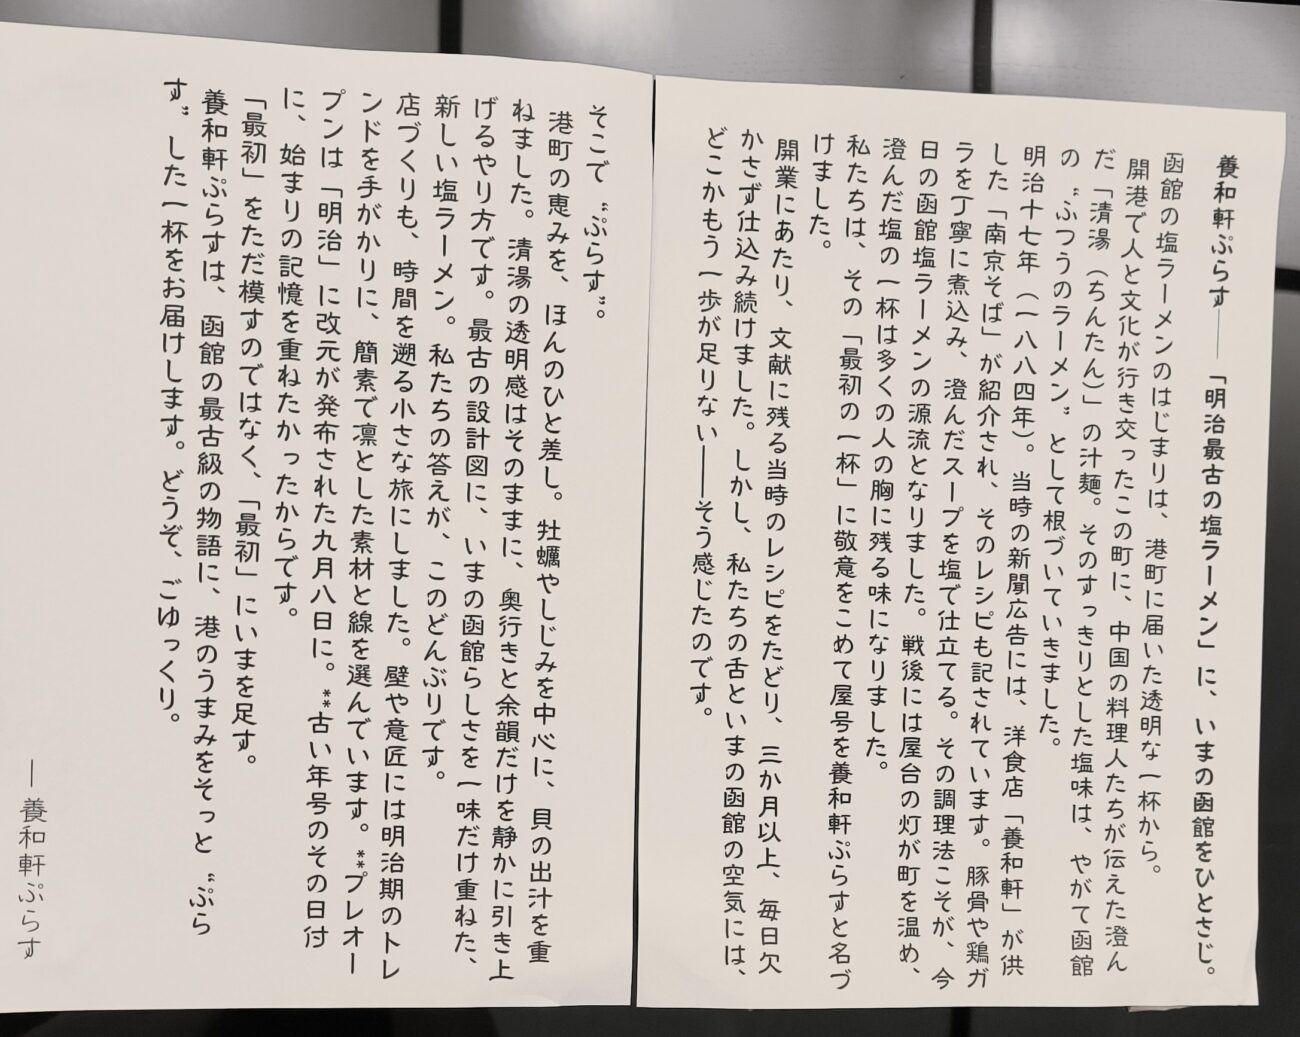 養和軒ぷらす――「明治最古の塩ラーメン」に、いまの函館をひとさじ。
函館の塩ラーメンのはじまりは、港町に届いた透明な一杯から。
開港で人と文化が行き交ったこの町に、中国の料理人たちが伝えた澄ん
だ「清湯（ちんたん）」の汁麺。そのすっきりとした塩味は、やがて函館
の〝ふつうのラーメン〟として根づいていきました。
明治十七年（一八八四年）。当時の新聞広告には、洋食店「養和軒」が供
した「南京そば」が紹介され、そのレシピも記されています。豚骨や鶏ガ
ラを丁寧に煮込み、澄んだスープを塩で仕立てる。その調理法こそが、今
日の函館塩ラーメンの源流となりました。戦後には屋台の灯が町を温め、
澄んだ塩の一杯は多くの人の胸に残る味になりました。
私たちは、その「最初の一杯」に敬意をこめて屋号を養和軒ぷらすと名づ
けました。
開業にあたり、文献に残る当時のレシピをたどり、三か月以上、毎日欠
かさず仕込み続けました。しかし、私たちの舌といまの函館の空気には、
どこかもう一歩が足りない――そう感じたのです。
そこで〝ぷらす〟。
港町の恵みを、ほんのひと差し。牡蠣やしじみを中心に、貝の出汁を重
ねました。清湯の透明感はそのままに、奥行きと余韻だけを静かに引き上
げるやり方です。最古の設計図に、いまの函館らしさを一味だけ重ねた、
新しい塩ラーメン。私たちの答えが、このどんぶりです。
店づくりも、時間を遡る小さな旅にしました。壁や意匠には明治期のトレ
ンドを手がかりに、簡素で凛とした素材と線を選んでいます。**プレオー
プンは「明治」に改元が発布された九月八日に。**古い年号のその日付
に、始まりの記憶を重ねたかったからです。
「最初」をただ模すのではなく、「最初」にいまを足す。
養和軒ぷらすは、函館の最古級の物語に、港のうまみをそっと〝ぷら
す〟した一杯をお届けします。どうぞ、ごゆっくり。
― 養和軒ぷらす